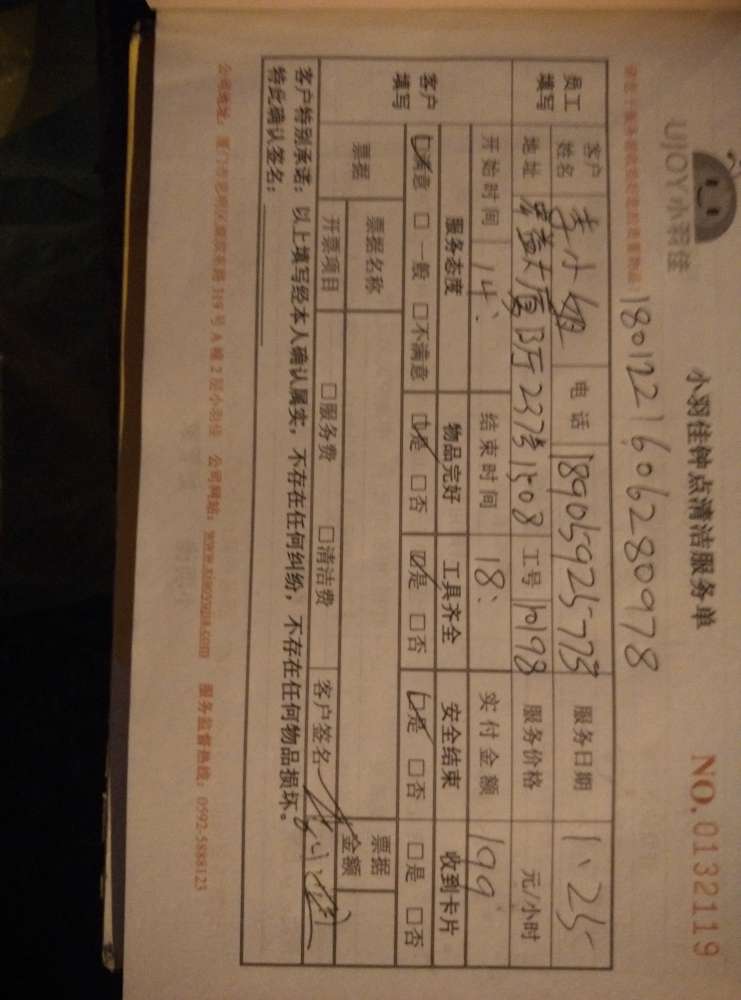 UJOY小羽佳
小羽佳钟点清洁服务单
NO.0132119
1801221606280978
员工填写
客户姓名 李小姐 电话 18905925773 服务日期 1.25
地址 B厅237号1508 工号 10198 服务价格 元/小时
开始时间 14: 结束时间 18: 实付金额 199
客户填写
服务态度 物品完好 工具齐全 安全结束 收到卡片
☑满意 □一般 □不满意 ☑是 □否 ☑是 □否 ☑是 □否 □是 □否
票据 票据名称 票据金额
开票项目 □服务费 □清洁费 客户签名
客户特别承诺：以上填写经本人确认属实，不存在任何纠纷，不存在任何物品损坏。
特此确认签名：
公司地址：厦门市思明区 319号A幢2层小羽佳 公司网站：www.xiaoyujia.com 服务监督热线：0592-5888123